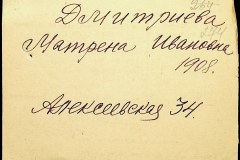 Дмитриева
Матрена Ивановна
1908.
Алексеевская 34.